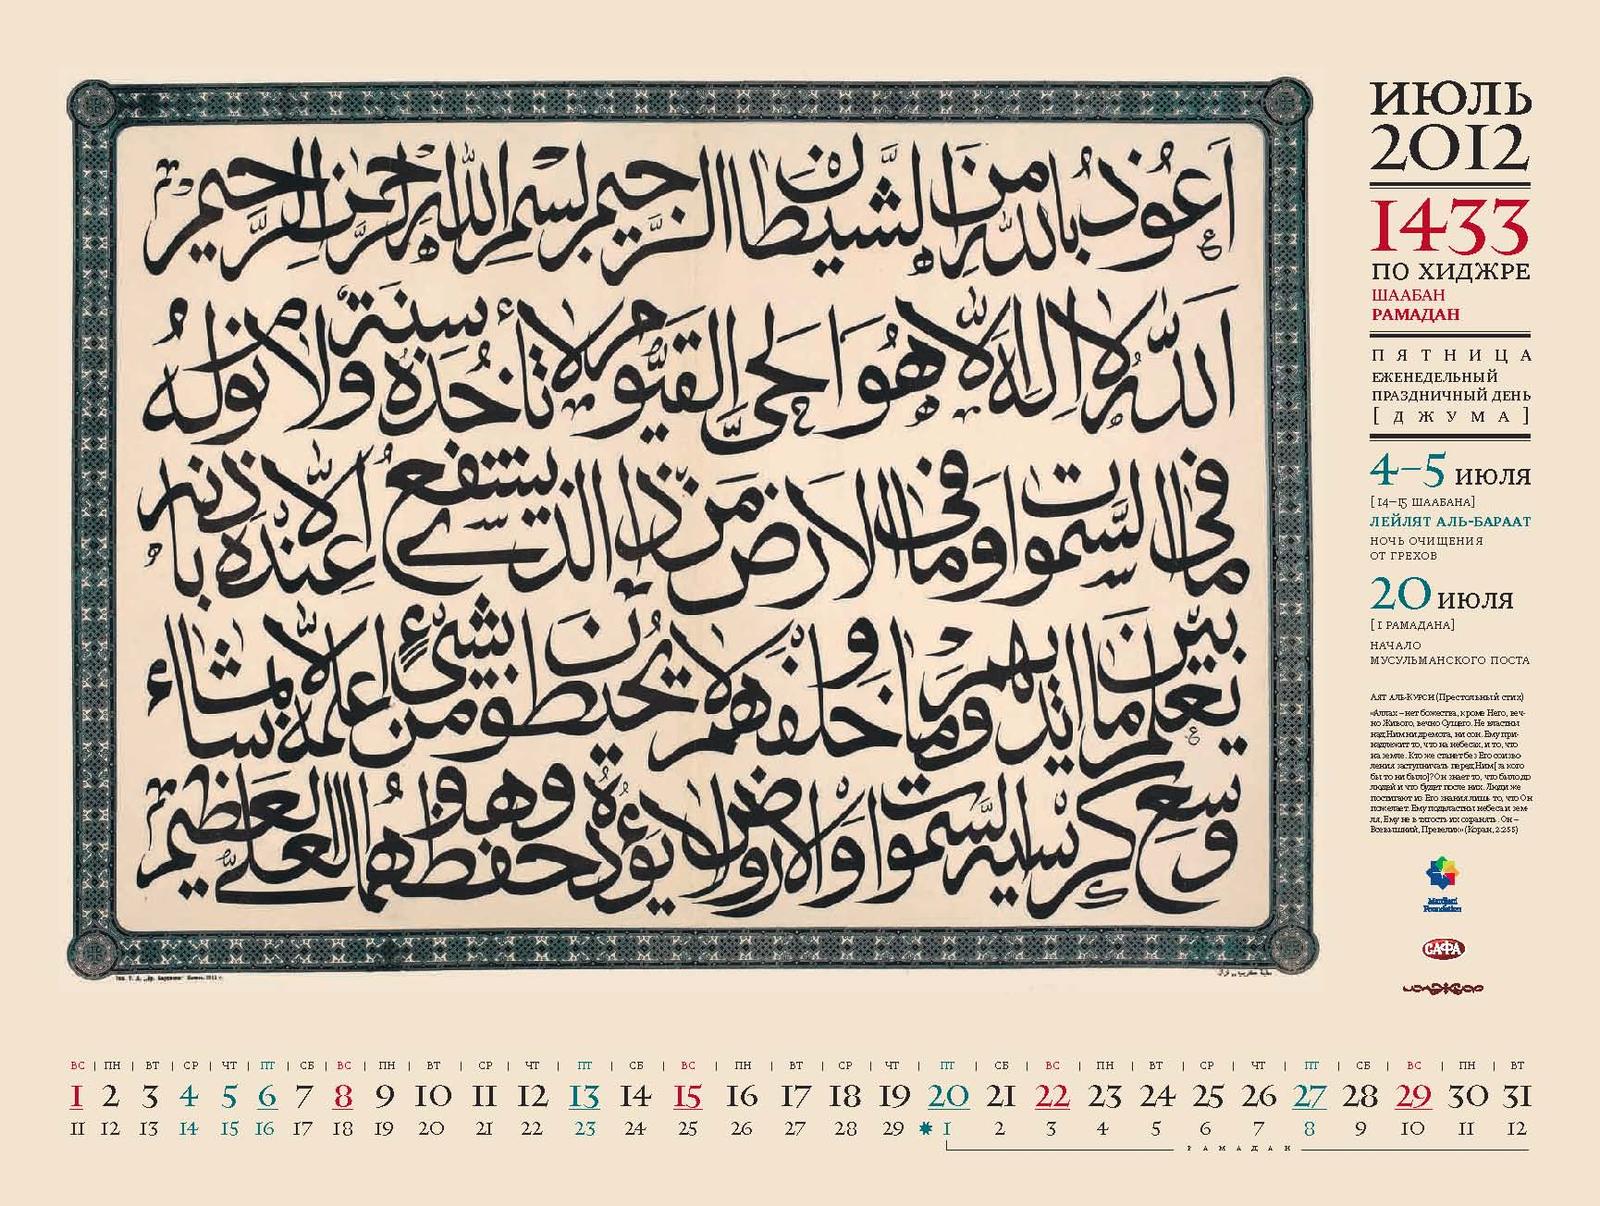 اَعُوذُ بِاللّٰهِ مِنَ الشيطان الرَّجيم بسم اللّٰهِ الرَّحمن الرَّحيم
اَللّٰهُ لا اله الّا هُوَ اَلحىّ القيّوم لا تأخذهُ سنَة ولا نومٌ لهُ
ما فى السّموات وما فى الارض مَن ذاالّذى يشفع عندهُ الّا باذنه
يَعلم ما بين ايديهم وما خلفهم ولا يُحيطون بشىءٍ من علمه الّا بما شاء
وسع كرسيه السّموات والارض ولا يؤدهُ حفظهما وهو العلىّ العظيم
ИЮЛЬ
2012
1433
ПО ХИДЖРЕ
ШААБАН
РАМАДАН
ПЯТНИЦА
ЕЖЕНЕДЕЛЬНЫЙ
ПРАЗДНИЧНЫЙ ДЕНЬ
[ДЖУМА]
4–5 ИЮЛЯ
[14–15 ШААБАНА]
ЛЕЙЛЯТ АЛЬ-БАРААТ
НОЧЬ ОЧИЩЕНИЯ
ОТ ГРЕХОВ
20 ИЮЛЯ
[1 РАМАДАНА]
НАЧАЛО
МУСУЛЬМАНСКОГО ПОСТА
АЯТ АЛЬ-КУРСИ (Престольный стих)
«Аллах – нет божества, кроме Него, веч-
но Живого, вечно Сущего. Не властны
над Ним ни дремота, ни сон. Ему при-
надлежит то, что на небесах, и то, что
на земле. Кто же станет без Его соизво-
ления заступничать перед Ним [за кого
бы то ни было]? Он знает то, что было до
людей и что будет после них. Люди же
постигают из Его знания лишь то, что Он
пожелает. Ему подвластны небеса и зем-
ля, Ему не в тягость их охранять. Он –
Всевышний, Превелик» (Коран, 2:255)
Mardjani
Foundation
САФА
ВС | ПН | ВТ | СР | ЧТ | ПТ | СБ | ВС | ПН | ВТ | СР | ЧТ | ПТ | СБ | ВС | ПН | ВТ | СР | ЧТ | ПТ | СБ | ВС | ПН | ВТ | СР | ЧТ | ПТ | СБ | ВС | ПН | ВТ
1 2 3 4 5 6 7 8 9 10 11 12 13 14 15 16 17 18 19 20 21 22 23 24 25 26 27 28 29 30 31
11 12 13 14 15 16 17 18 19 20 21 22 23 24 25 26 27 28 29 1 2 3 4 5 6 7 8 9 10 11 12
РАМАДАН